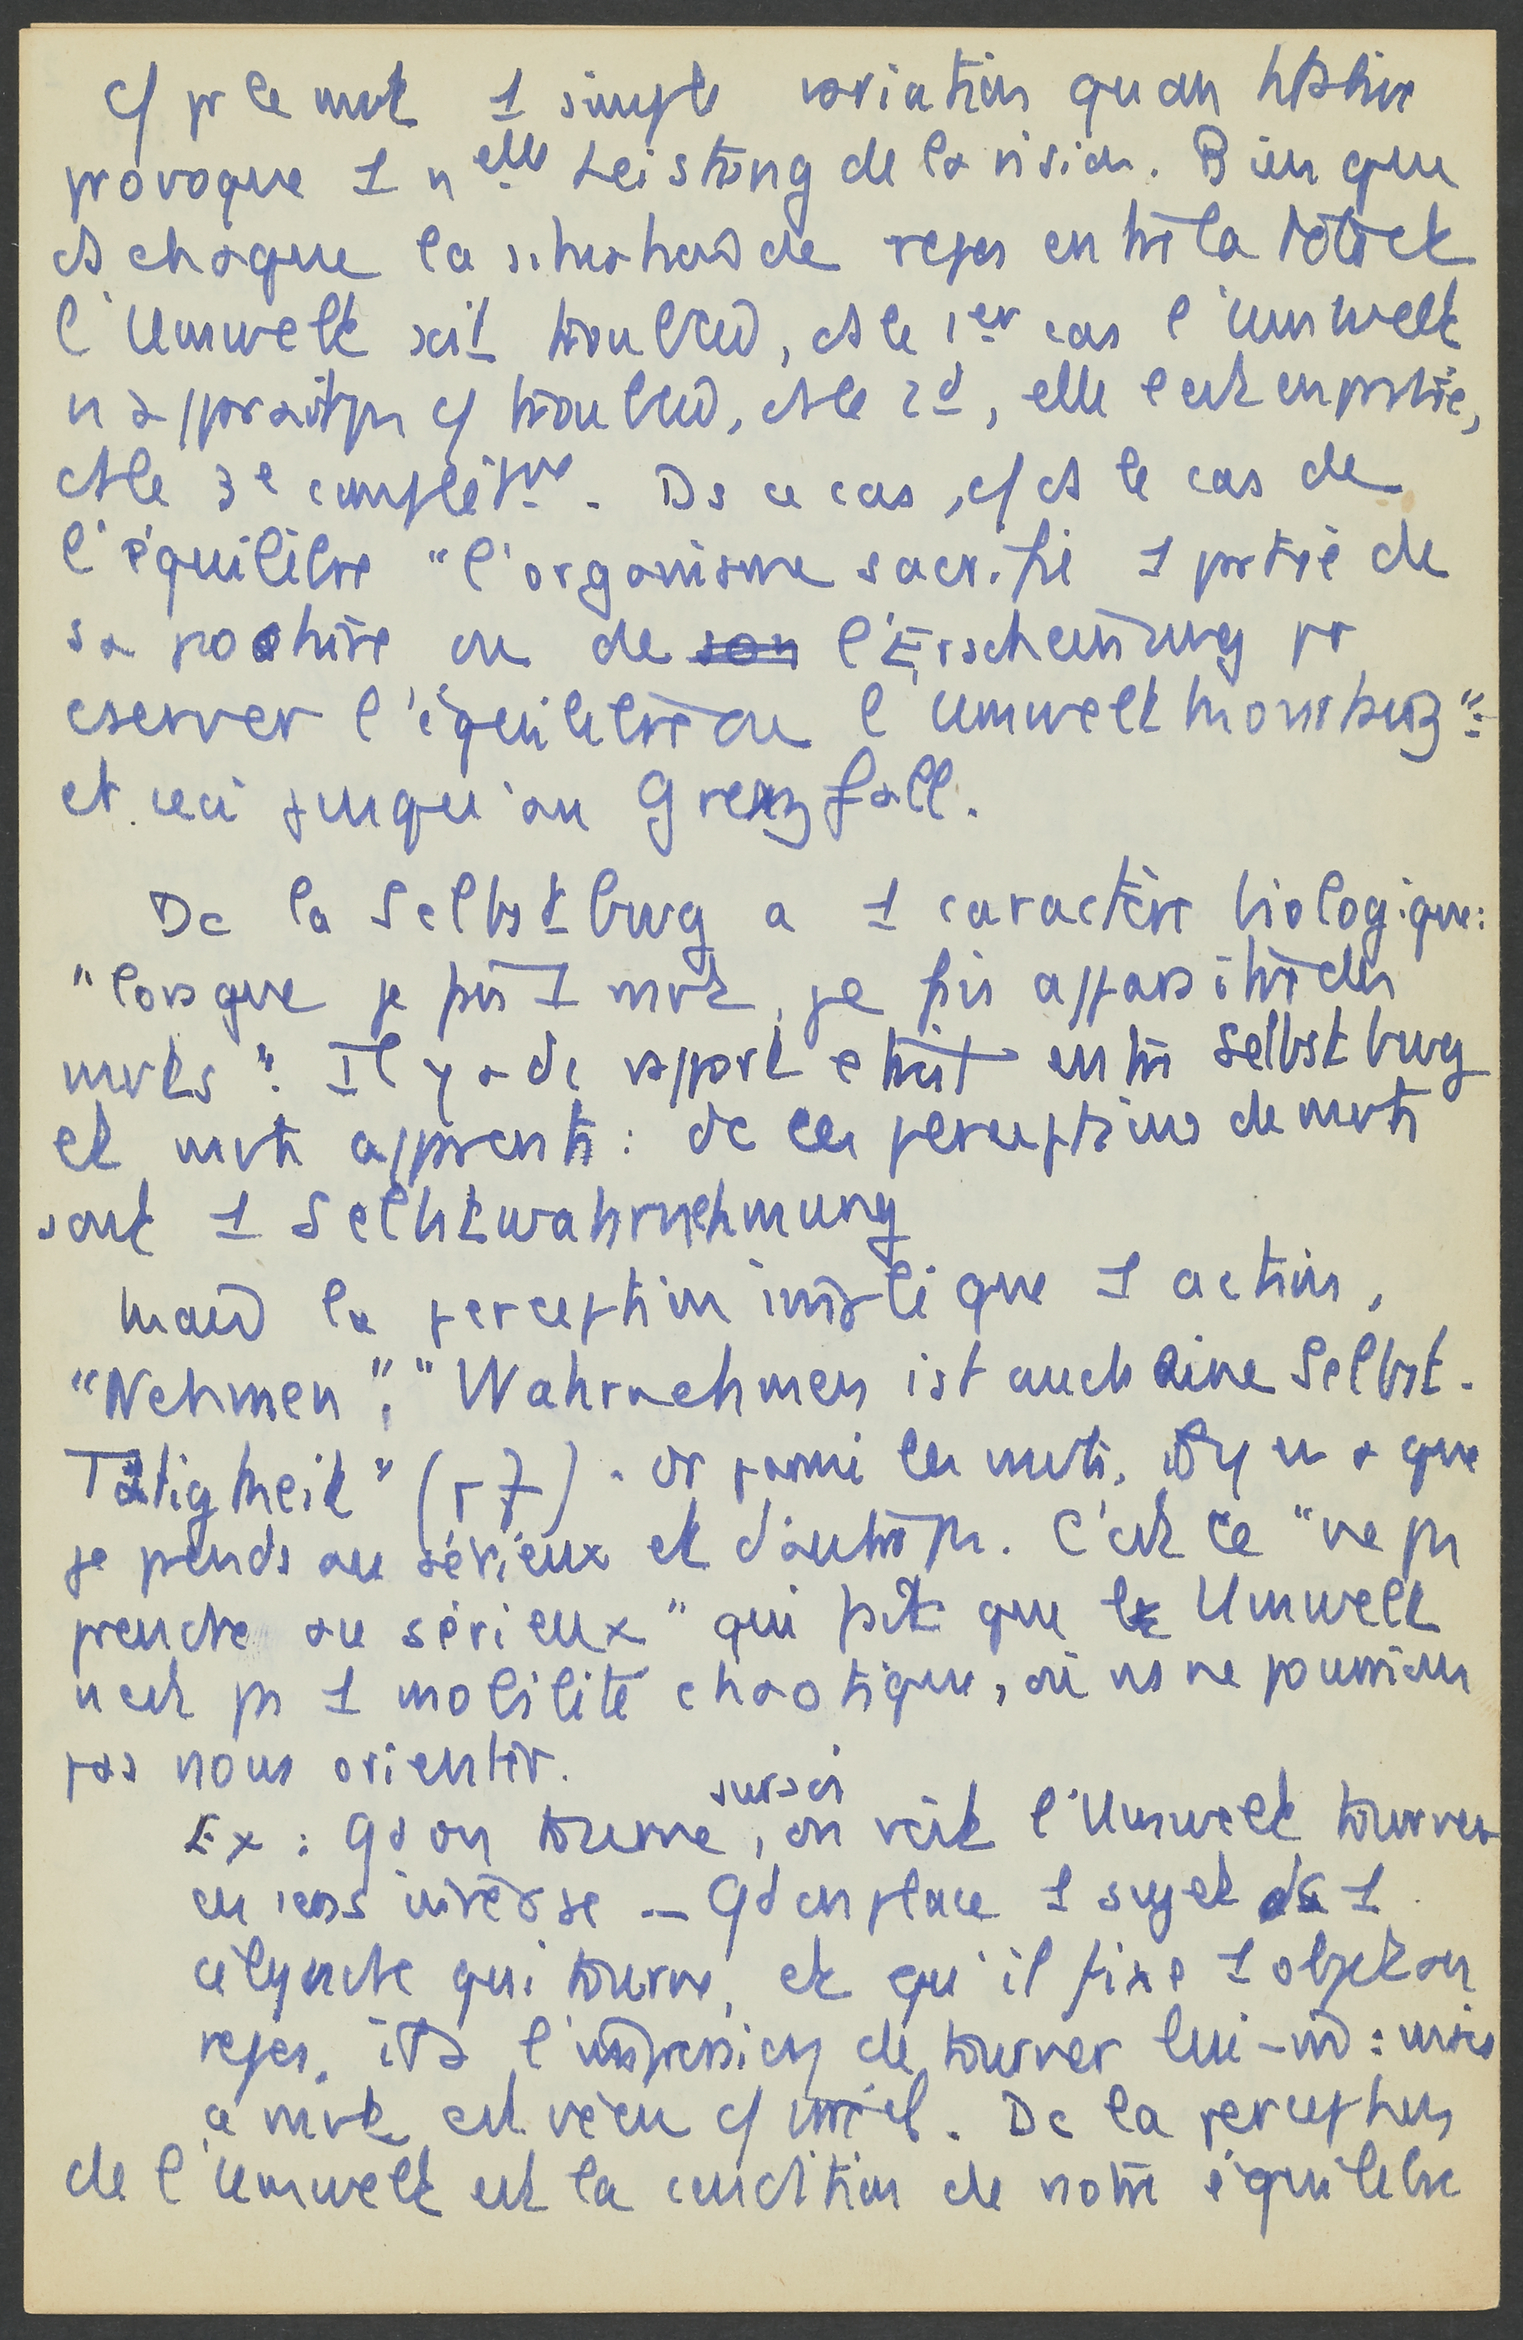 c/ pr le mvt 1 simple variation quantitative
provoque 1 nelle Leistung de la vision. Bien que
ds chaque la situation de repos entre la tête et
l'Umwelt soit troublée, ds le 1er cas l'Umwelt
n'apparaît pas c/ troublée, ds le 2d, elle l'est en partie,
ds le 3e complètmt. Ds ce cas, c/ ds le cas de
l'équilibre "l'organisme sacrifie 1 partie de
sa posture ou de son l'Erscheinung pr
cserver l'équilibre ou l'Umwelt
et ceci jusqu'au Grenzfall.
Dc la Selbstbwg a 1 caractère biologique:
"lorsque je fais 1 mvt, je fais apparaître des
mvts". Il y a dc rapport étroit entre Selbstbwg
et mvts apparents: dc les perceptions de mvts
sont 1 Selbstwahrnehmung
mais la perception implique 1 action,
"Nehmen"; "Wahrnehmen ist auch eine Selbst-
Tätigkeit" (17). Or parmi les mvts, il y en a que
je prends au sérieux et d'autres pas. C'est ce "ne pas
prendre au sérieux" qui fait que le Umwelt
n'est pas 1 mobilité chaotique, où ns ne pourrions
pas nous orienter.
Ex: Qd on tourne sur soi, on voit l'Umwelt tourner
en sens inverse – Qd on place 1 sujet ds 1
cylindre qui tourne, et qu'il fixe 1 objet au
repos, il a l'impression de tourner lui-m̂: mais
ce mvt est vécu c/ irréel. Dc la perception
de l'Umwelt est la condition de notre équilibre